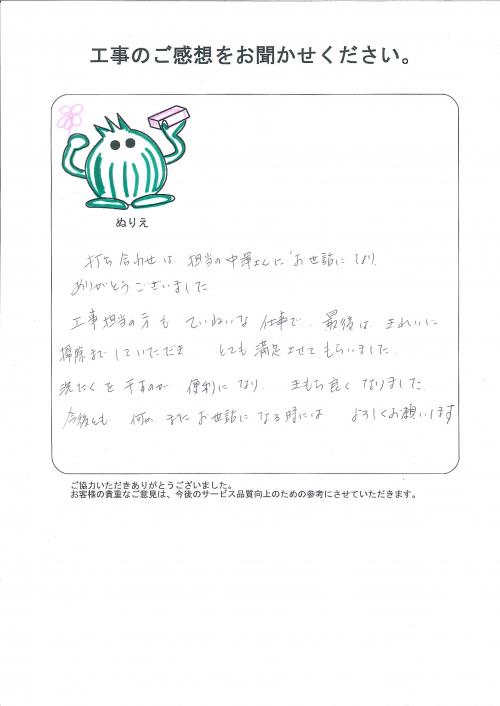 工事のご感想をお聞かせください。
ぬりえ
打ち合わせは 担当の中澤さんに お世話になり
ありがとうございました
工事担当の方も ていねいな 仕事で、最後は きれいに
掃除までしていただき とても 満足させて もらいました。
洗たくを 干すのが 便利になり、 きもち良く なりました。
今後とも 何か またお世話に なる時には よろしくお願いします
ご協力いただきありがとうございました。
お客様の貴重なご意見は、今後のサービス品質向上のための参考にさせていただきます。